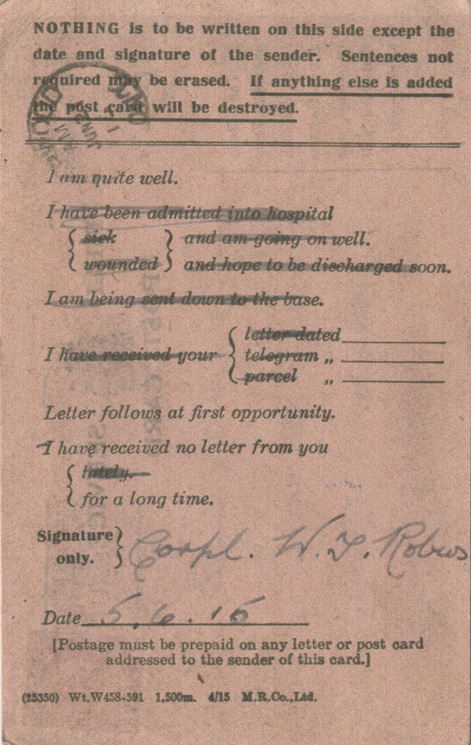 NOTHING is to be written on this side except the
date and signature of the sender. Sentences not
required may be erased. If anything else is added
the post card will be destroyed.
I am quite well.
I have been admitted into hospital
{ sick } and am going on well.
{ wounded } and hope to be discharged soon.
I am being sent down to the base.
I have received your { letter dated
telegram „
parcel „
Letter follows at first opportunity.
I have received no letter from you
{ lately.
{ for a long time.
Signature only. } Corpl. W. J. Robus
Date 5.6.15
[Postage must be prepaid on any letter or post card
addressed to the sender of this card.]
(25350) Wt.W458-591 1,500m. 4/15 M.R.Co.,Ltd.